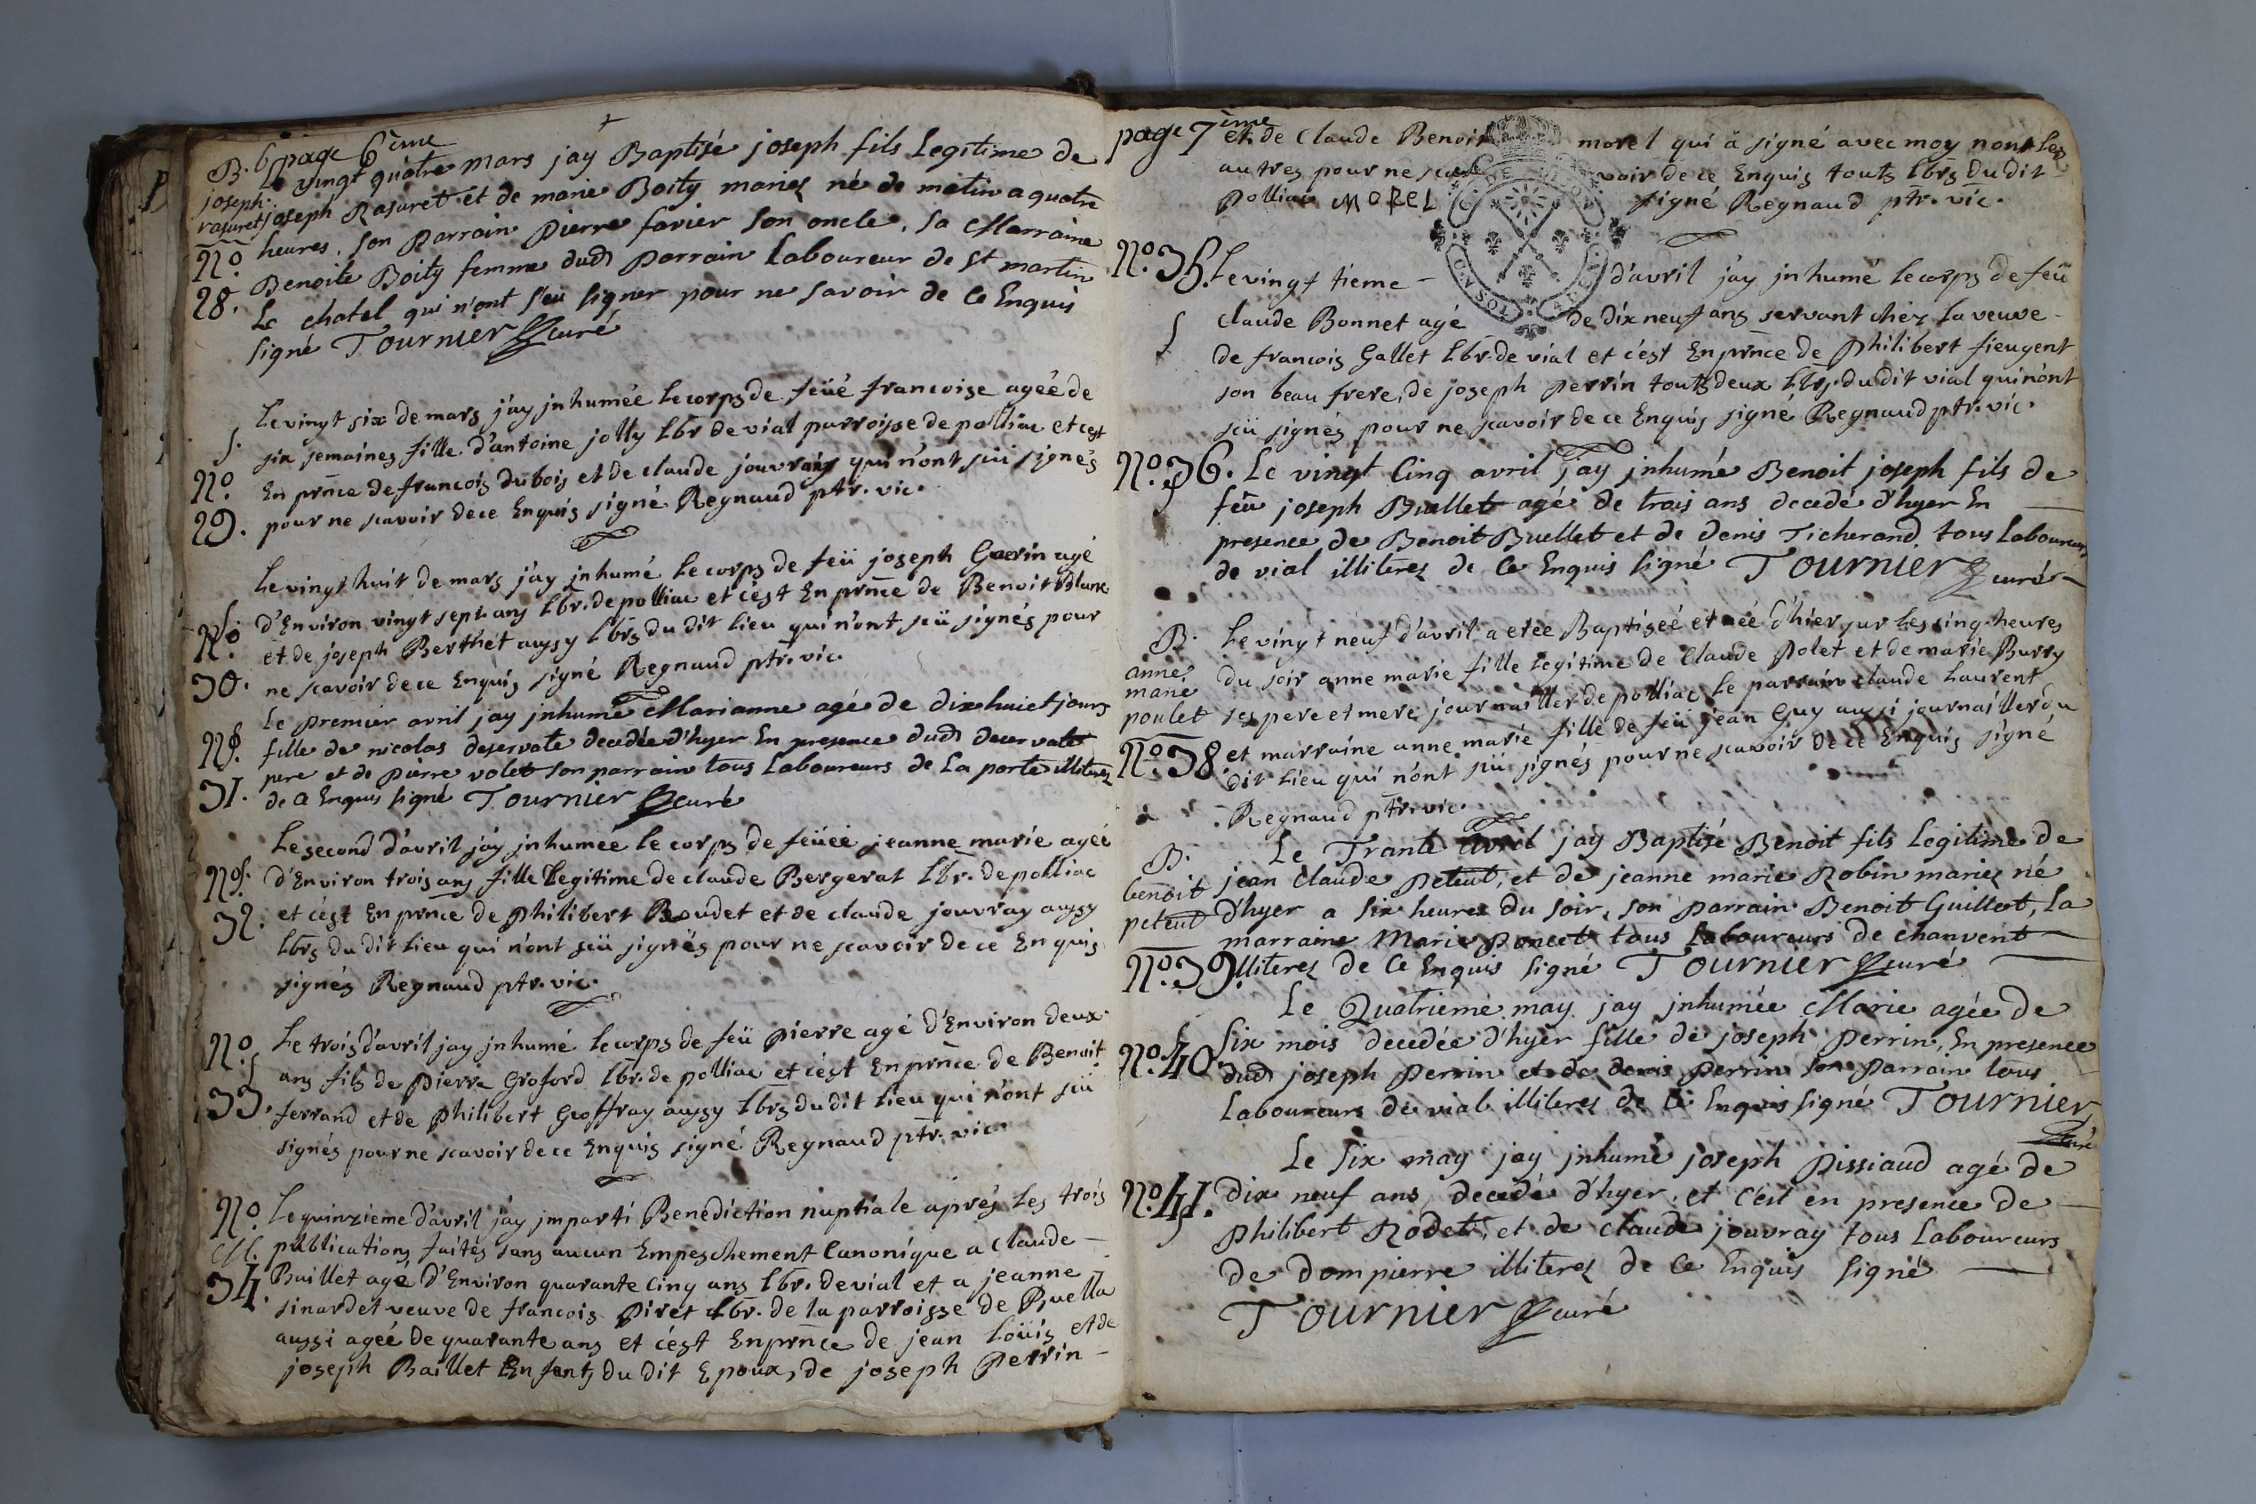 page 6ème
B. 6
Le vingt quatre mars jay Baptisé joseph fils Legitime de
joseph
rasuret
joseph Rasuret et de marie Boity mariez né de matin a quatre
heures, son Parrain Pierre favier son oncle, sa Marraine
No.
Benoite Boity femme dud parrain Laboureur de St martin
28.
Le chatel qui n'ont s'eu signer pour ne savoir de ce Enquis
signé Tournier curé
Le vingt six de mars j'ay jnhumée le corps de feüe francoise agéé de
S.
six semaines fille d'antoine jolly lbr de vial parroisse de polliac et cest
No.
En prnce de francois dubois et de claude jouvray qui n'ont sçu signés
29.
pour ne scavoir de ce Enquis signé Regnaud ptr. vic.
Le vingt huit de mars j'ay jnhumé le corps de feü joseph Guerin agé
S.
d'Environ vingt sept ans lbr. de polliac et c'est En prnce de Benoit Blanc
No.
et de joseph Berthet aussy lbrs du dit lieu qui n'ont sçü signés pour
30.
ne scavoir de ce Enquis signé Regnaud ptr. vic.
Le premier avril jay jnhumé Marianne agé de dixhuict jours
No.
fille de nicolas deservate decedée d'hyer En presence dud deservate
31.
pere et de Pierre volet son parrain tous Laboureurs de La porte illiterez
de ce Enquis signé Tournier curé
Le second d'avril j'ay jnhumée le corps de feüee jeanne marie agéé
No. S.
d'Environ trois ans fille Legitime de claude Bergerat lbr. de polliac
32.
et c'est En prnce de philibert Boudet et de claude jouvray aussy
lbrs du dit lieu qui n'ont sçü signés pour ne scavoir de ce Enquis
signés Regnaud ptr. vic.
Le trois d'avril jay jnhumé le corps de feü Pierre agé d'Environ deux
No. S
ans fils de Pierre Groford lbr. de polliac et c'est En prnce de Benoit
33.
ferrand et de Philibert Geoffray aussy lbrs du dit lieu qui n'ont sçü
signés pour ne scavoir de ce Enquis signé Regnaud ptr. vic.
Le quinzieme d'avril jay jmparti Benediction nuptiale aprés les trois
No.
publications faités sans aucun Empeschement Canonique a claude
M.
Baillet agé d'Environ quarante Cinq ans lbr. de vial et a jeanne
34.
sinardet veuve de francois Piret lbr. de la parroisse de Ruella
aussi ageé de quarante ans et c'est En prnce de jean Loüis et de
joseph Baillet Enfants du dit Epoux, de joseph Perrin
page 7ème
et de claude Benoit morel qui a signé avec moy non les
autres pour ne sca voir de ce Enquis touts lbrs du dit
Polliac MOREL signé Regnaud ptr. vic.
No. 35.
Le vingt tieme d'avril j'ay jnhumé le corps de feü
S
claude Bonnet agé de dix neuf ans servant chéz la veuve
de francois Gallet lbr. de vial et c'est En prnce de Philibert fieugent
son beau frere, de joseph Perrin touts deux lbrs. du dit vial qui n'ont
sçü signés pour ne scavoir de ce Enquis signé Regnaud ptr. vic.
No. 36.
Le vingt Cinq avril jay jnhumé Benoit joseph fils de
S
feü joseph Buellet agé de trois ans decedé d'hyer En
presence de Benoit Buellet et de denis Ticherand tous Laboureurs
de vial illiterez de ce Enquis signé Tournier curé
B.
Le vingt neuf d'avril a etéé Baptiséé et néé d'hier sur les cinq heures
anne
marie
du soir anne marie fille Legitime de claude Polet et de marie Burry
poulet
ses pere et mere journaillers de polliac le parrain claude Laurent
No. 38.
et marraine anne marie fille de feü jean Guy aussi journaillers du
dit lieu qui n'ont sçü signés pour ne scavoir de ce Enquis signé
Regnaud ptr. vic.
B.
Le Trante avril jay Baptisé Benoit fils Legitime de
benoit
jean claude Peteut, et de jeanne marie Robin mariez né
peteut
d'hyer a six heures du soir, son parrain Benoit Guillot, La
marraine Marie Poncet tous Laboureurs de chanvent
No. 39.
illiterez de ce Enquis signé Tournier curé
Le Quatrieme may jay jnhumée Marie agée de
S
six mois decedée d'hyer fille de joseph Perrin, En presence
No. 40
dud joseph Perrin et de denis Perrin son Parrain tous
Laboureurs de vial illiterez de ce Enquis signé Tournier
curé
Le six may jay jnhumé joseph Pissiaud agé de
No. 41.
dix neuf ans, decedé d'hyer, et c'est en presence de
S
Philibert Rodet, et de claude jouvray tous Laboureurs
de dompierre illiterez de ce Enquis signé
Tournier curé